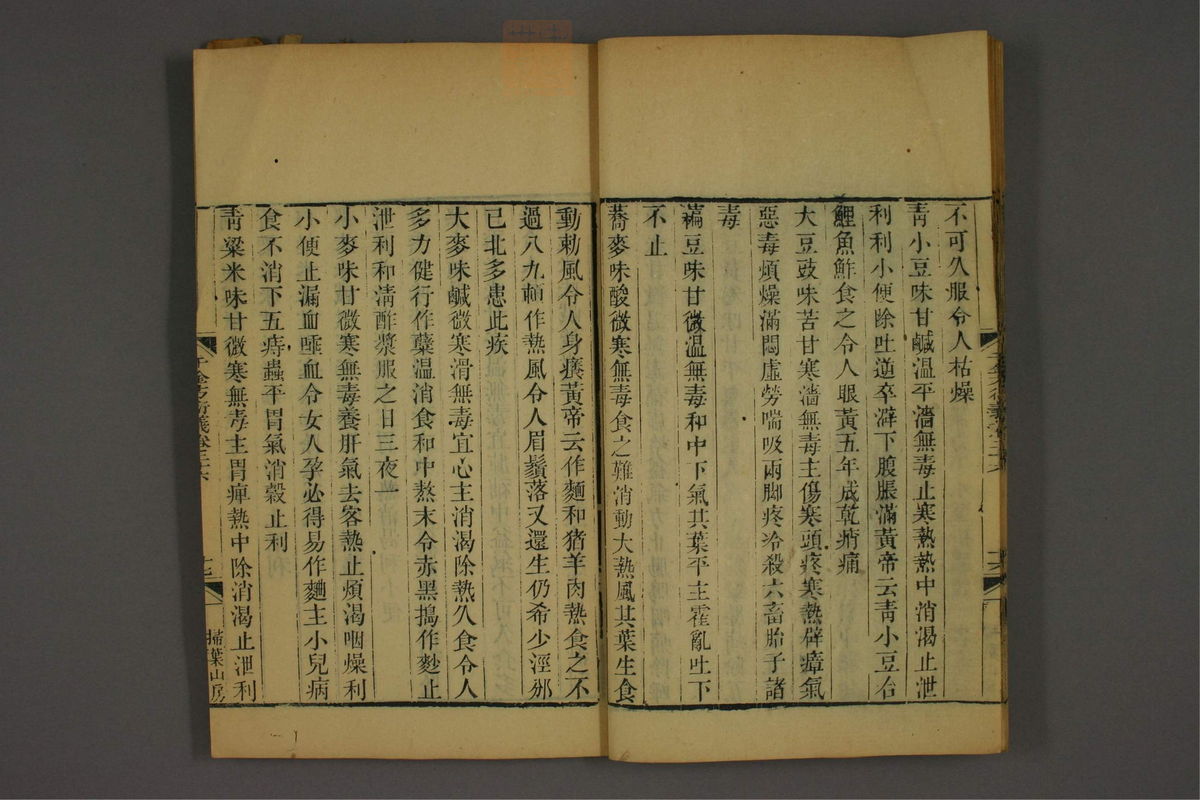 不可久服令人枯燥
靑小豆味甘鹹温平濇無毒止寒熱熱中消渴止泄
利利小便除吐逆卒澼下腹脹滿黃帝云靑小豆合
鯉魚鮓食之令人眼黃五年成乾痟痛
大豆豉味苦甘寒濇無毒主傷寒頭疼寒熱辟瘴氣
惡毒煩燥滿悶虛勞喘吸兩脚疼冷殺六畜胎子諸
毒
藊豆味甘微温無毒和中下氣其葉平主霍亂吐下
不止
蕎麥味酸微寒無毒食之難消動大熱風其葉生食
動剌風令人身癢黃帝云作麵和猪羊肉熱食之不
過八九頓作熱風令人眉鬚落又還生仍希少涇邠
已北多患此疾
大麥味鹹微寒滑無毒宜心主消渴除熱久食令人
多力健行作蘖温消食和中熬末令赤黑搗作麨止
泄利和淸酢漿服之日三夜一
小麥味甘微寒無毒養肝氣去客熱止煩渴咽燥利
小便止漏血唾血令女人孕必得易作麯主小兒病
食不消下五痔蟲平胃氣消穀止利
靑粱米味甘微寒無毒主胃痺熱中除消渴止泄利
千金方衍義卷二十六
十七
掃葉山房